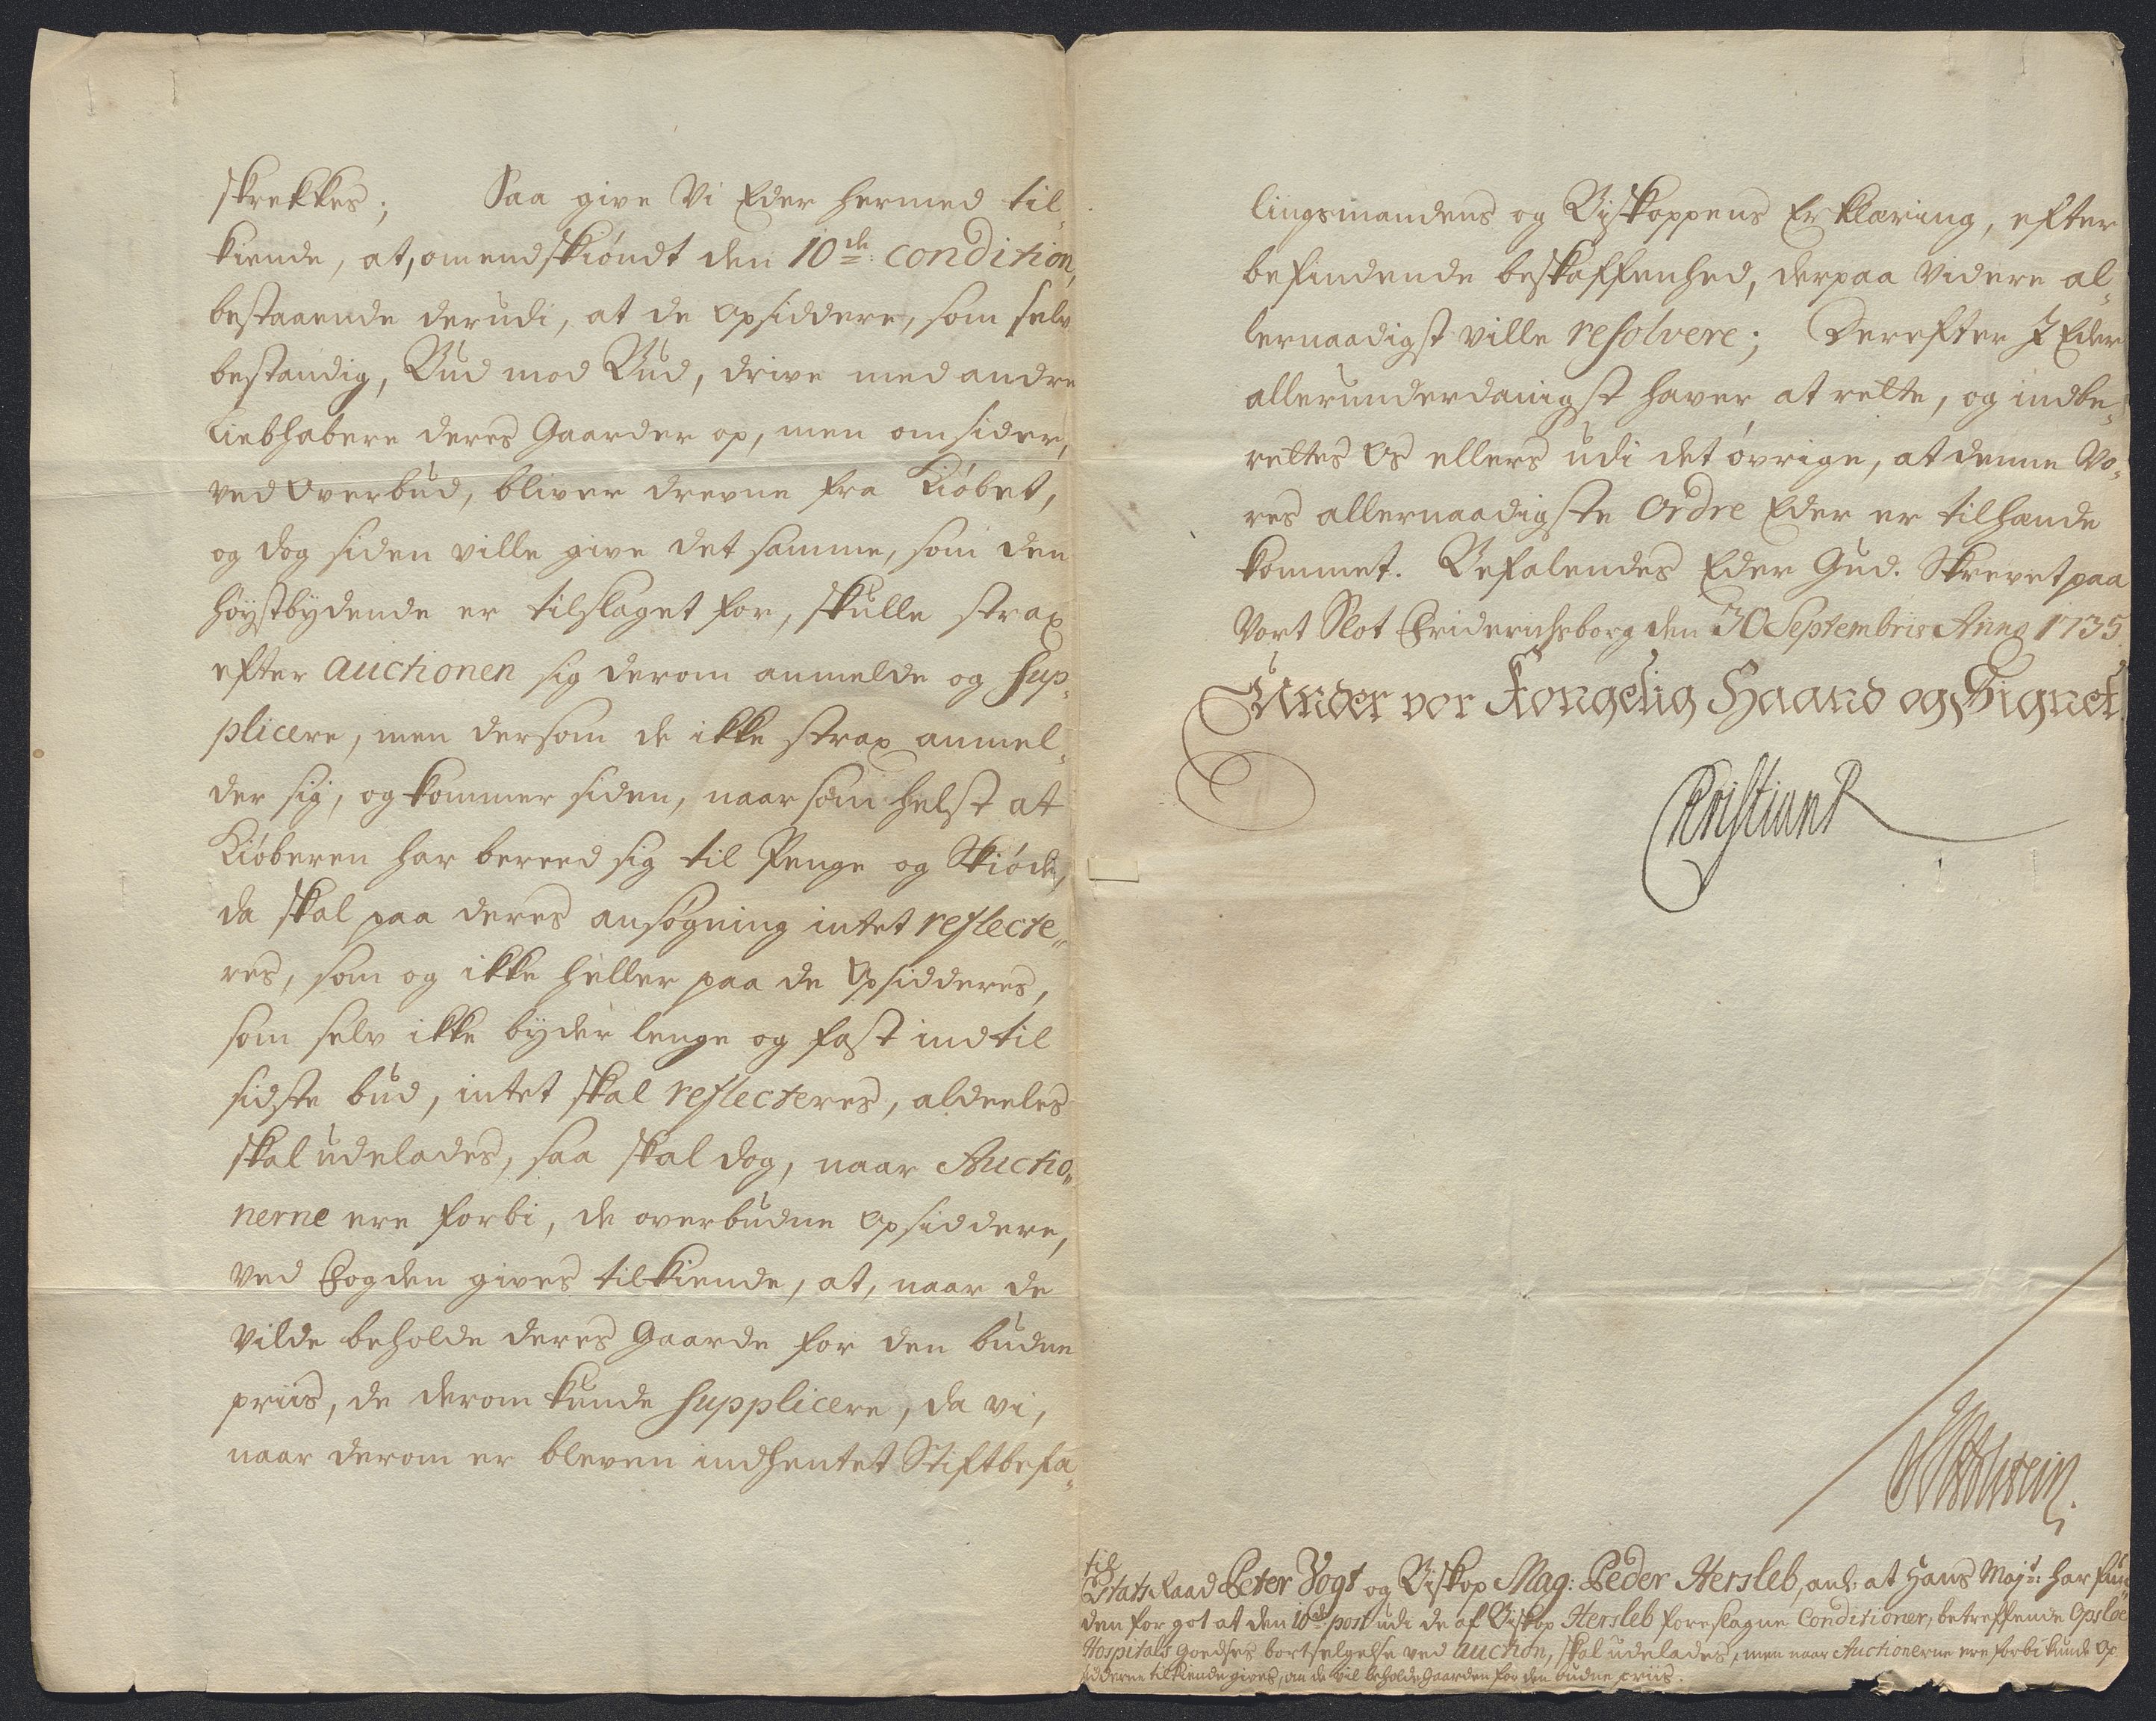 skrekkes; Saa give Vi Eder hermed til-
kiende, at, omendskiøndt den 10de: condition,
bestaaende derudi, at de Opsiddere, som selv
bestandig, Bud mod Bud, drive med andre
Liebhabere deres Gaarder op, men omsider,
ved Overbud, bliver drevne fra Kiøbet,
og dog siden ville give det samme, som den
høystbydende er tilslaget for, skulle strax
efter auctionen sig derom anmelde og sup-
plicere, men dersom de ikke strax anmel-
der sig, og kommer siden, naarsomhelst at
Kiøberen har bereed sig til Penge og Skiøde,
da skal paa deres ansøgning intet reflecte-
res, som og ikke heller paa de Opsidderes,
som selv ikke byder lenge og fast indtil
sidste bud, intet skal reflecteres, aldeeles
skal udelades, saa skal dog, naar Auctio-
nerne ere forbi, de overbudne Opsiddere,
ved Fogden gives tilkiende, at, naar de
vilde beholde deres Gaarde for den budne
priis, de derom kunde supplicere, da vi,
naar derom er bleven indhentet Stiftbefa-
lingsmandens og Biskoppens Erklæring, efter
befindende beskaffenhed, derpaa videre al-
lernaadigst ville resolvere; Derefter I Eder
allerunderdanigst haver at rette, og indbe-
rettes Os ellers udi det øvrige, at denne Vo-
res allernaadigste Ordre Eder er tilhænde
kommet. Befalendes Eder Gud. Skrevet paa
Vort Slot Friderichsborg den 30 Septembris Anno 1735.
Under vor Kongelig Haand og Signet
Christian R
til
Etats Raad Peter Vogt og Biskop Mag: Peder Hersleb, anl: at Hans Majt: har fun-
den for got at den 10de post udi de af Biskop Hersleb foreslagne Conditioner, betreffende Opsloe
Hospitals Goedses bortselgelse ved auction, skal udelades, men naar Auctionerne ere forbi kunde Op
sidderne tilkiendegives, om de vil beholde Gaarden for den budne priis.